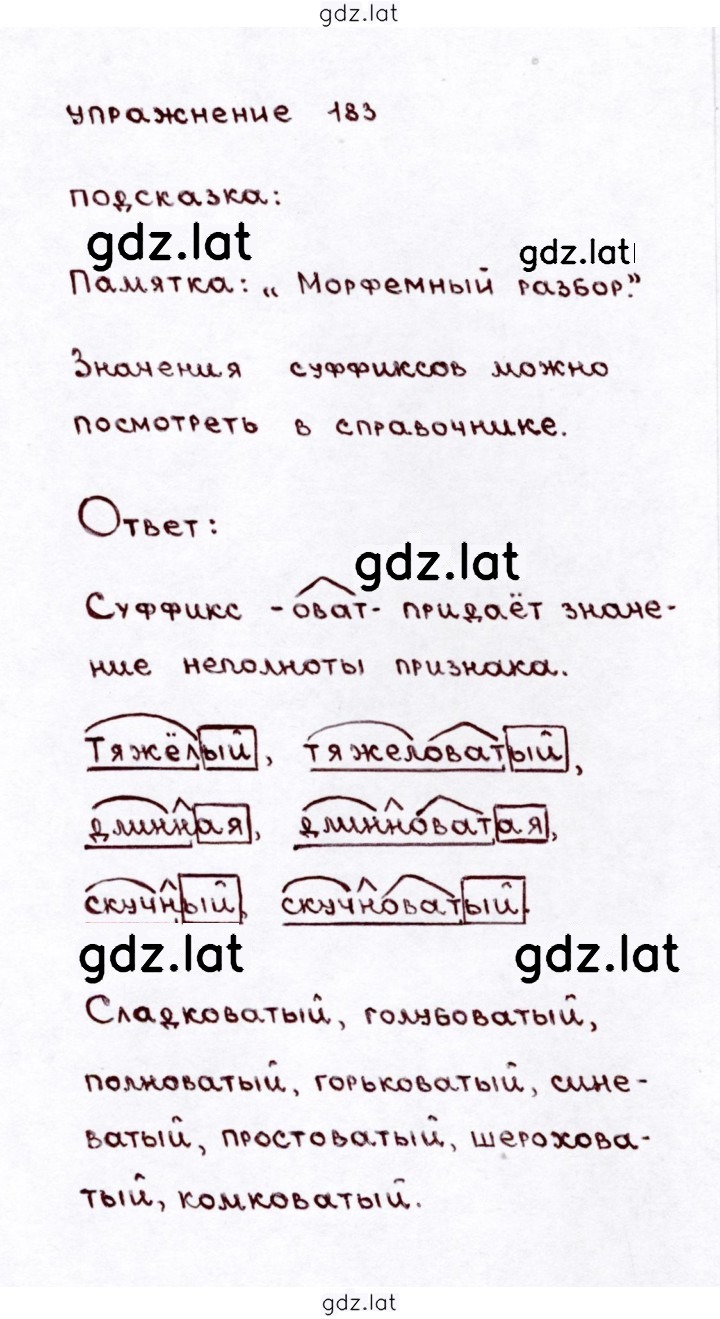 gdz.lat
упражнение 183
подсказка:
gdz.lat gdz.lat
Памятка: „ Морфемный разбор."
Значения суффиксов можно
посмотреть в справочнике.
Ответ:
gdz.lat
Суффикс -оват- придаёт значе-
ние неполноты признака.
Тяжёлый, тяжеловатый,
длинная, длинноватая,
скучный, скучноватый.
gdz.lat gdz.lat
Сладковатый, голубоватый,
полноватый, горьковатый, сине-
ватый, простоватый, шерохова-
тый, комковатый.
gdz.lat